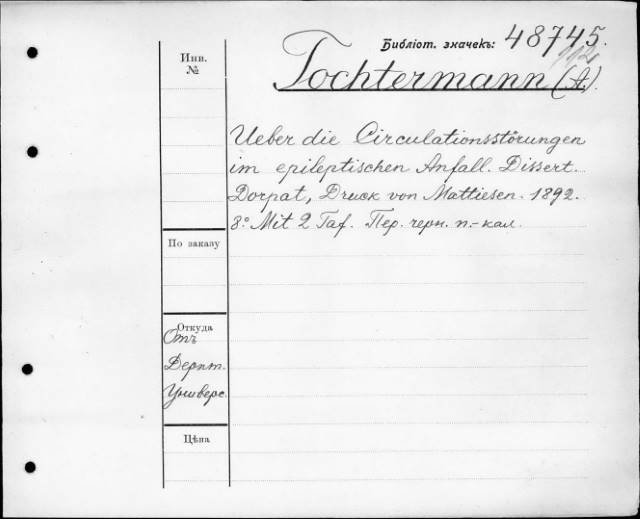 Библіот. значекъ: 48745.
Инв.
№
Tochtermann (A.).
Ueber die Circulationsstörungen
im epileptischen Anfall. Dissert.
Dorpat, Druck von Mattiesen. 1892.
8º Mit 2 Taf. Пер. черн. п.-кал.
По заказу
Откуда
Отъ
Дерпт.
Универс.
Цѣна